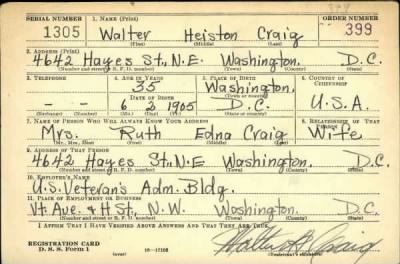 SERIAL NUMBER 1. NAME (Print) ORDER NUMBER
1305 Walter Heiston Craig 399
(First) (Middle) (Last)
2. ADDRESS (Print)
4642 Hayes St., N.E. Washington. D.C.
(Number and street or R. F. D. number) (Town) (County) (State)
3. TELEPHONE 4. AGE IN YEARS 5. PLACE OF BIRTH 6. COUNTRY OF CITIZENSHIP
35 Washington.
(Town or county)
DATE OF BIRTH
- - 6 2 1905 D.C. U.S.A.
(Exchange) (Number) (Mo.) (Day) (Yr.) (State or country)
7. NAME OF PERSON WHO WILL ALWAYS KNOW YOUR ADDRESS 8. RELATIONSHIP OF THAT PERSON
Mrs. Ruth Edna Craig Wife
(Mr., Mrs., Miss) (First) (Middle) (Last)
9. ADDRESS OF THAT PERSON
4642 Hayes St., N.E Washington. D.C.
(Number and street or R. F. D. number) (Town) (County) (State)
10. EMPLOYER'S NAME
U.S. Veteran's Adm. Bldg.
11. PLACE OF EMPLOYMENT OR BUSINESS
Vt. Ave. & H St., N.W. Washington. D.C.
(Number and street or R. F. D. number) (Town) (County) (State)
I AFFIRM THAT I HAVE VERIFIED ABOVE ANSWERS AND THAT THEY ARE TRUE.
REGISTRATION CARD
D. S. S. Form 1 (over) Walter H. Craig
(Registrant's signature)